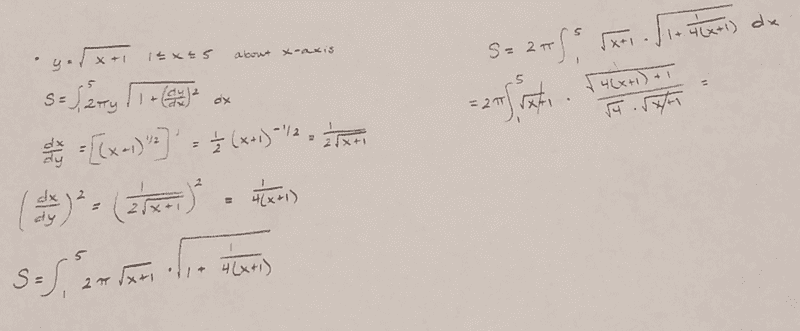 • y = √(x+1) 1 ≤ x ≤ 5 about x-axis
S = ∫₁⁵ 2πy √(1 + (dy/dx)²) dx
dx/dy = [(x+1)^(1/2)]' = 1/2 (x+1)^(-1/2) = 1/(2√(x+1))
(dx/dy)² = (1/(2√(x+1)))² = 1/(4(x+1))
S = ∫₁⁵ 2π √(x+1) · √(1 + 1/(4(x+1)))
S = 2π ∫₁⁵ √(x+1) · √(1 + 1/(4(x+1))) dx
= 2π ∫₁⁵ √(x+1) · √(4(x+1)+1) / (√4 · √(x+1)) =